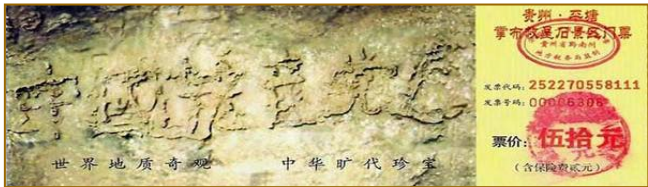 中国共产党
世界地质奇观 中华旷代珍宝
贵州·平塘
掌布藏字石景区门票
贵州省黔南州
发票代码：252270558111
发票号码：00006306
票价：伍拾元
（含保险费贰元）